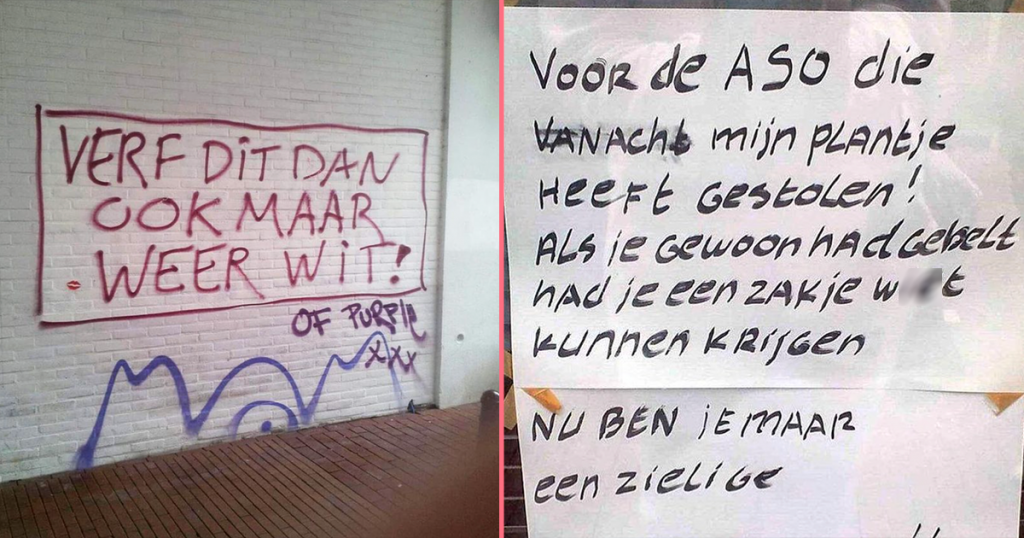 VERF DIT DAN
OOK MAAR
WEER WIT!
OF PURPLE
XXX
VOOR de ASO die
VANACHt mijn PLANTje
HEEFT GESTOLEN!
ALS je GEWOON HAD GEBELT
HAD je een ZAKje
KUNNEN KRIJGEN
NU BEN jE MAAR
een zieliGe